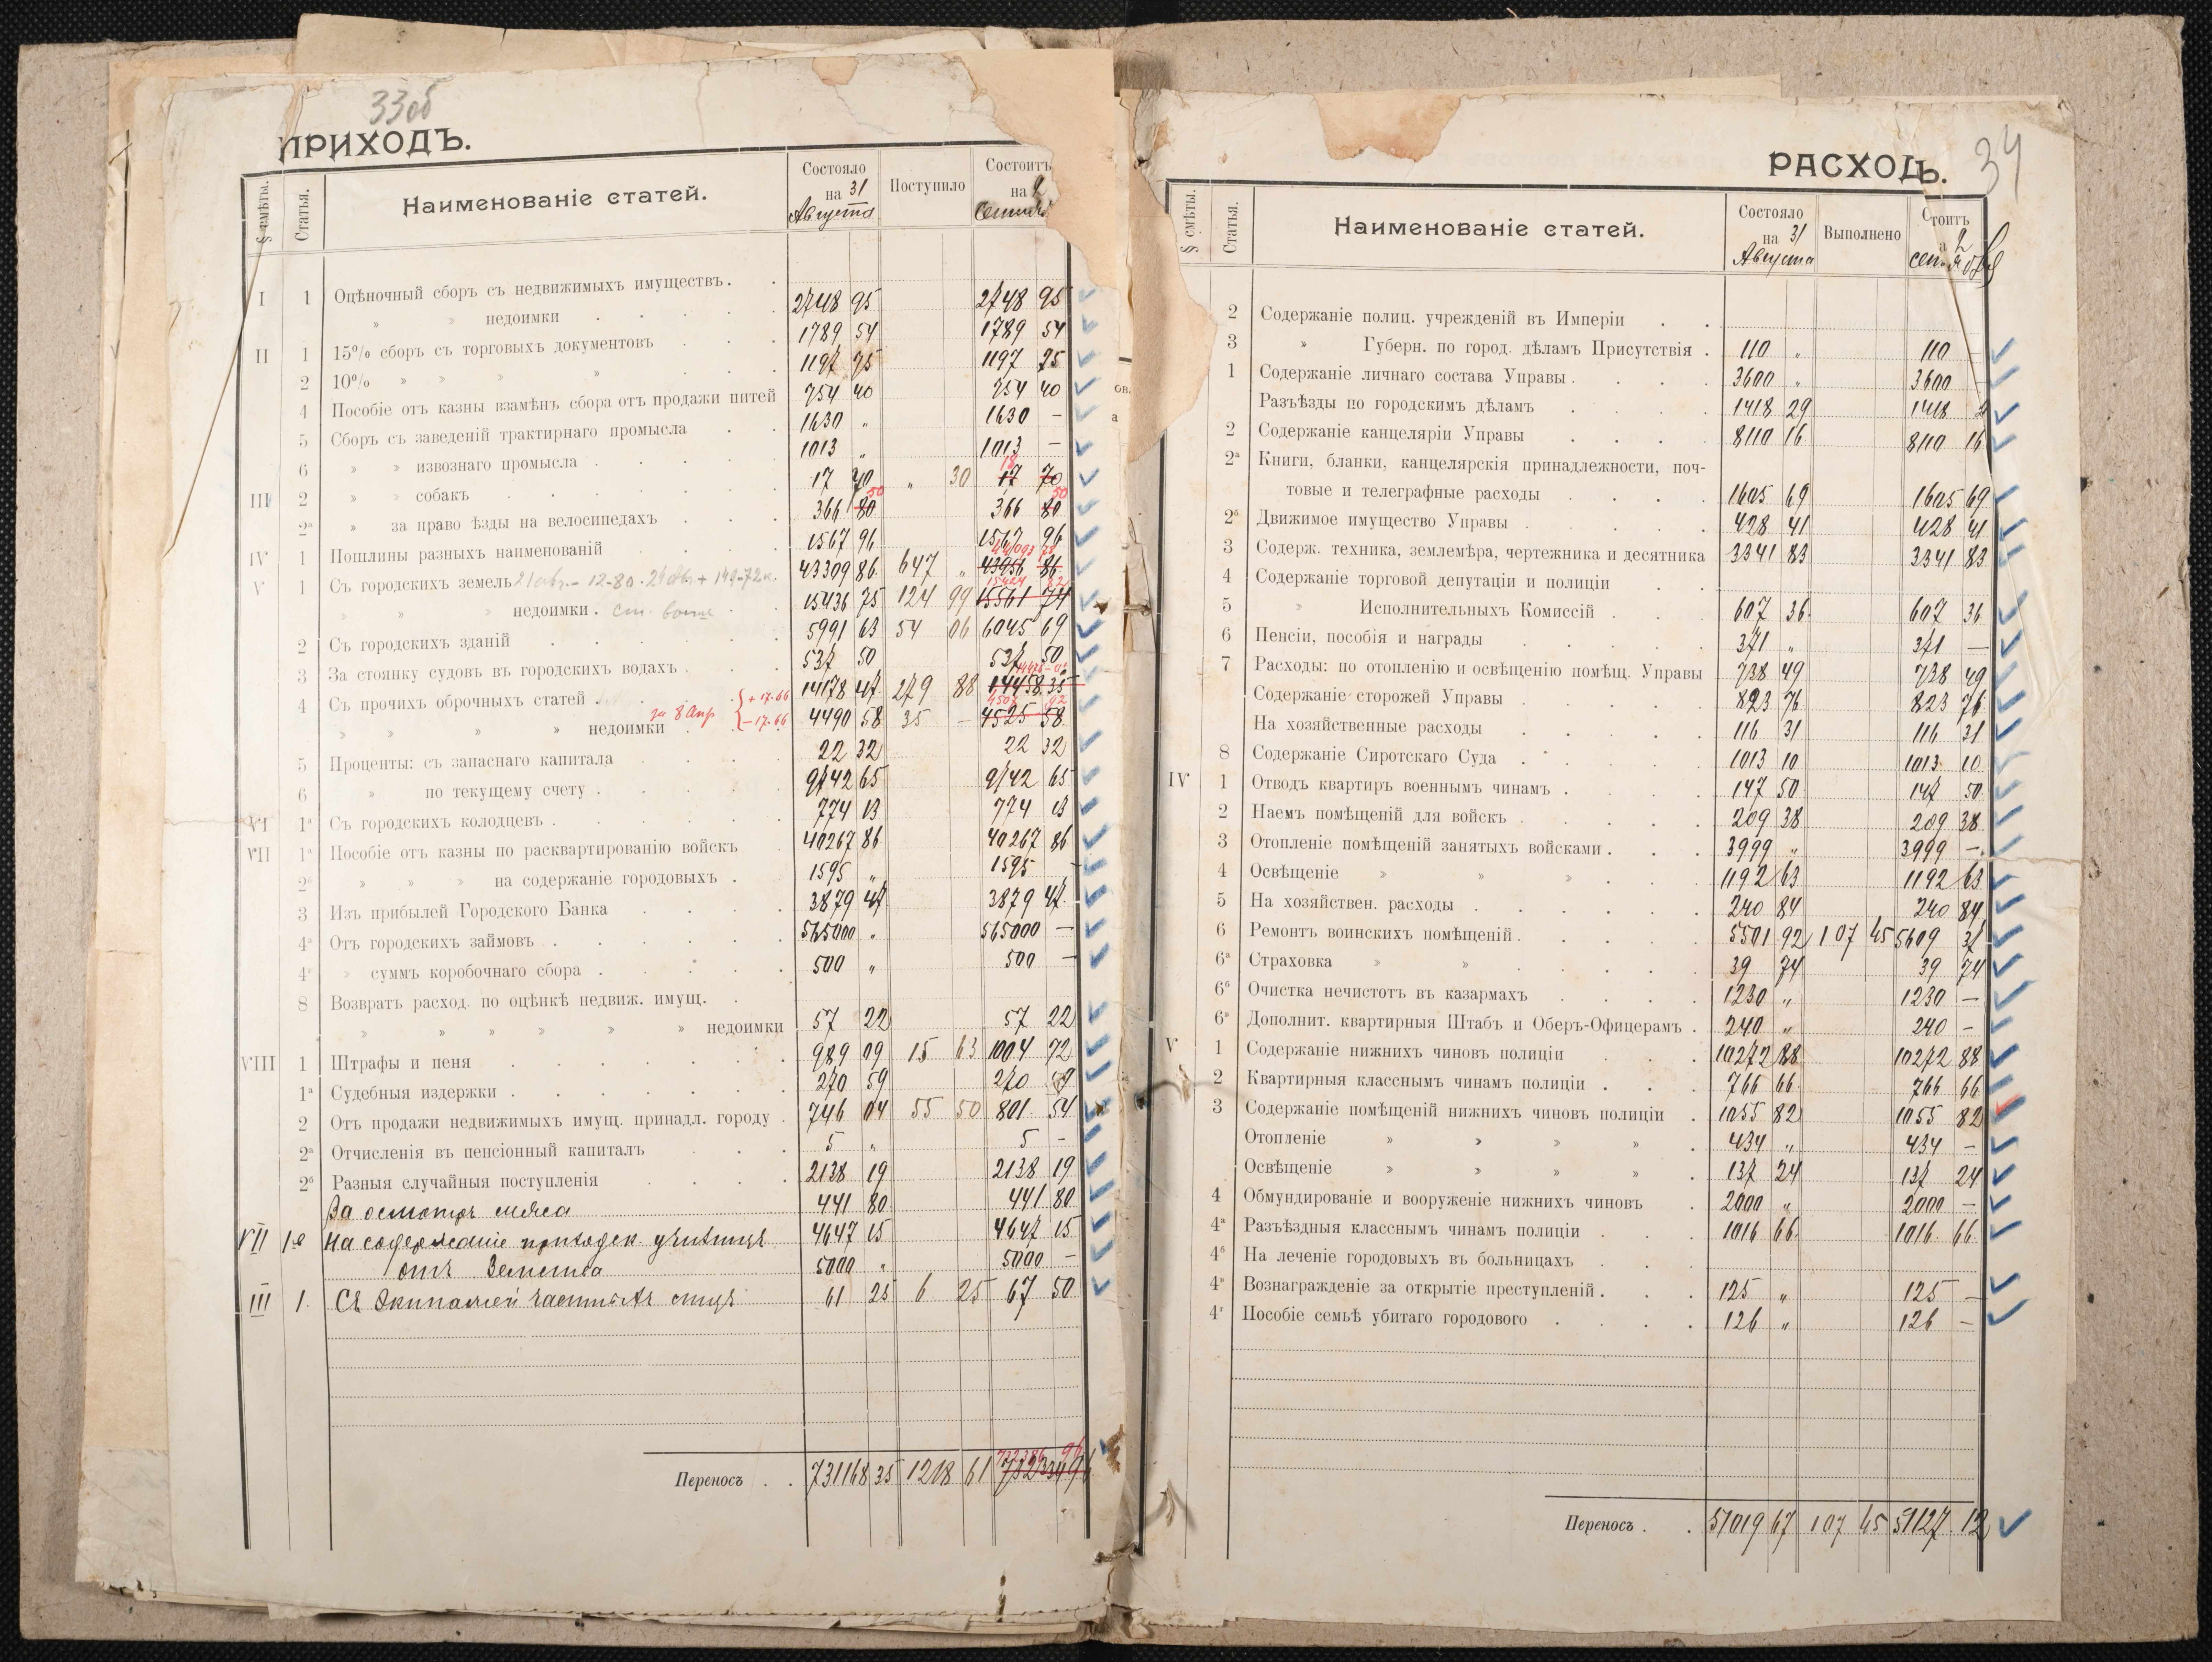 33об
ПРИХОДЪ.
§ смѣты. Статья. Наименованіе статей. Состояло на 31 Августа Поступило Состоитъ на 2
I 1 Оцѣночный сборъ съ недвижимыхъ имуществъ. 2748 95 2748 95
» » недоимки 1789 54 1789 54
II 1 15% сборъ съ торговыхъ документовъ 1197 75 1197 75
2 10% » » » » 754 40 754 40
4 Пособіе отъ казны взамѣнъ сбора отъ продажи питей 1630 „ 1630 —
5 Сборъ съ заведеній трактирнаго промысла 1013 „ 1013 —
6 » » извознаго промысла 17 70 „ 30 17 70 18
III 2 » » собакъ 366 80 50 366 80 50
2а » за право ѣзды на велосипедахъ
IV 1 Пошлины разныхъ наименованій 1567 96 1567 96
V 1 Съ городскихъ земель 43309 86 647 „ 43956 86
» » » недоимки. 15436 75 124 99 15561 74
2 Съ городскихъ зданій 5991 63 54 06 6045 69
3 За стоянку судовъ въ городскихъ водахъ 537 50 537 50
4 Съ прочихъ оброчныхъ статей +17.66 14178 47 279 88 14458 35
» » » » недоимки за 8 Апр —17.66 4490 58 35 — 4525 58
5 Проценты: съ запаснаго капитала 22 32 22 32
6 » по текущему счету 9742 65 9742 65
VI 1а Съ городскихъ колодцевъ 774 13 774 13
VII 1а Пособіе отъ казны по расквартированію войскъ 40267 86 40267 86
2а » » » на содержаніе городовыхъ 1595 „ 1595 —
3 Изъ прибылей Городского Банка 3879 47 3879 47
4а Отъ городскихъ займовъ 565000 „ 565000 —
4г » суммъ коробочнаго сбора 500 „ 500 —
8 Возвратъ расход. по оцѣнкѣ недвиж. имущ.
» » » » » » недоимки 57 22 57 22
VIII 1 Штрафы и пеня 989 09 15 63 1004 72
1а Судебныя издержки 270 59 270 59
2 Отъ продажи недвижимыхъ имущ. принадл. городу 746 04 55 50 801 54
2а Отчисленія въ пенсіонный капиталъ 5 „ 5 —
2б Разныя случайныя поступленія 2138 19 2138 19
За осмотръ мяса 441 80 441 80
VII 1а На содержаніе 4647 15 4647 15
отъ Земства 5000 „ 5000 —
III 1. Съ Экипажей частныхъ лицъ 61 25 6 25 67 50
Переносъ 731168 35 1218 61 732386 96
34
РАСХОДЪ.
§ смѣты. Статья. Наименованіе статей. Состояло на 31 Августа Выполнено стоитъ а 2 сентября
2 Содержаніе полиц. учрежденій въ Имперіи
3 » Губерн. по город. дѣламъ Присутствія 110 „ 110 —
1 Содержаніе личнаго состава Управы 3600 „ 3600 —
Разъѣзды по городскимъ дѣламъ 1418 29 1418
2 Содержаніе канцеляріи Управы 8110 16 8110 16
2а Книги, бланки, канцелярскія принадлежности, поч-
товые и телеграфные расходы 1605 69 1605 69
2б Движимое имущество Управы 428 41 428 41
3 Содерж. техника, землемѣра, чертежника и десятника 3341 83 3341 83
4 Содержаніе торговой депутаціи и полиціи
5 » Исполнительныхъ Комиссій 607 36 607 36
6 Пенсіи, пособія и награды 371 „ 371 —
7 Расходы: по отопленію и освѣщенію помѣщ. Управы 738 49 738 49
Содержаніе сторожей Управы 823 76 823 76
На хозяйственные расходы 116 31 116 31
8 Содержаніе Сиротскаго Суда 1013 10 1013 10
IV 1 Отводъ квартиръ военнымъ чинамъ 147 50 147 50
2 Наемъ помѣщеній для войскъ 209 38 209 38
3 Отопленіе помѣщеній занятыхъ войсками 3999 „ 3999 —
4 Освѣщеніе » » » 1192 63 1192 63
5 На хозяйствен. расходы 240 84 240 84
6 Ремонтъ воинскихъ помѣщеній 5501 92 107 45 5609 37
6а Страховка » » 39 74 39 74
6б Очистка нечистотъ въ казармахъ 1230 „ 1230 —
6в Дополнит. квартирныя Штабъ и Оберъ-Офицерамъ 240 „ 240 —
V 1 Содержаніе нижнихъ чиновъ полиціи 10272 88 10272 88
2 Квартирныя класснымъ чинамъ полиціи 766 66 766 66
3 Содержаніе помѣщеній нижнихъ чиновъ полиціи 1055 82 1055 82
Отопленіе » » » » 434 „ 434 —
Освѣщеніе » » » » 137 24 137 24
4 Обмундированіе и вооруженіе нижнихъ чиновъ 2000 „ 2000 —
4а Разъѣздныя класснымъ чинамъ полиціи 1016 66 1016 66
4б На леченіе городовыхъ въ больницахъ
4в Вознагражденіе за открытіе преступленій 125 „ 125 —
4г Пособіе семьѣ убитаго городового 126 „ 126 —
Переносъ 51019 67 107 45 51127 12